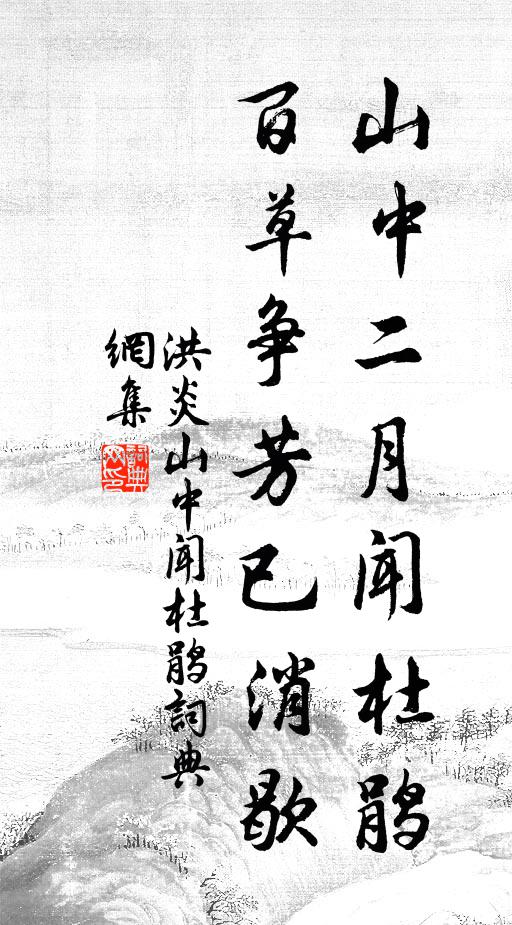 山中二月闻杜鹃
百草争芳已消歇
洪炎山中闻杜鹃詞典
網集
詞典
网印